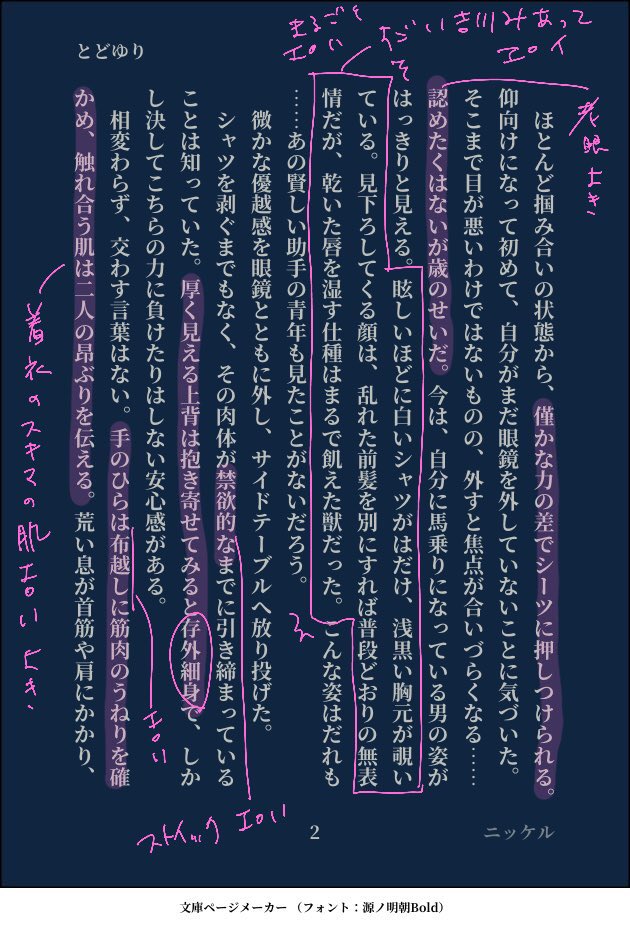 とどゆり
ほとんど掴み合いの状態から、僅かな力の差でシーツに押しつけられる。
仰向けになって初めて、自分がまだ眼鏡を外していないことに気づいた。
そこまで目が悪いわけではないものの、外すと焦点が合いづらくなる……
認めたくはないが歳のせいだ。今は、自分に馬乗りになっている男の姿が
はっきりと見える。眩しいほどに白いシャツがはだけ、浅黒い胸元が覗い
ている。見下ろしてくる顔は、乱れた前髪を別にすれば普段どおりの無表
情だが、乾いた唇を湿す仕種はまるで飢えた獣だった。こんな姿はだれも
……あの賢しい助手の青年も見たことがないだろう。
微かな優越感を眼鏡とともに外し、サイドテーブルへ放り投げた。
シャツを剥ぐまでもなく、その肉体が禁欲的なまでに引き締まっている
ことは知っていた。厚く見える上背は抱き寄せてみると存外細身で、しか
し決してこちらの力に負けたりはしない安心感がある。
相変わらず、交わす言葉はない。手のひらは布越しに筋肉のうねりを確
かめ、触れ合う肌は二人の昂ぶりを伝える。荒い息が首筋や肩にかかり、
2
ニッケル
みあって
エロイ
まるごと
エロい
老眼よき、
エロい
ストイック エロい
着衣のスキマの肌エロいよき、
文庫ページメーカー（フォント：源ノ明朝Bold）